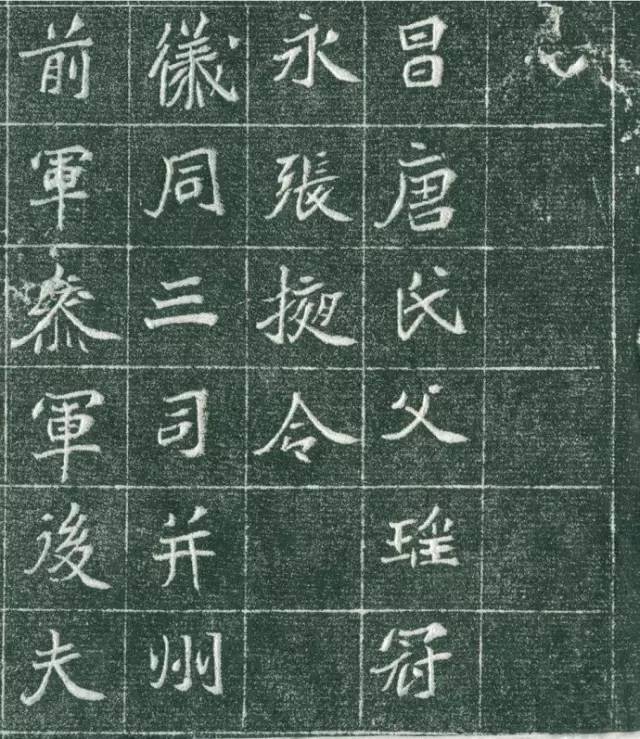 昌唐氏父瑶冠
永張掖令
儀同三司并州
前軍叅軍後夫